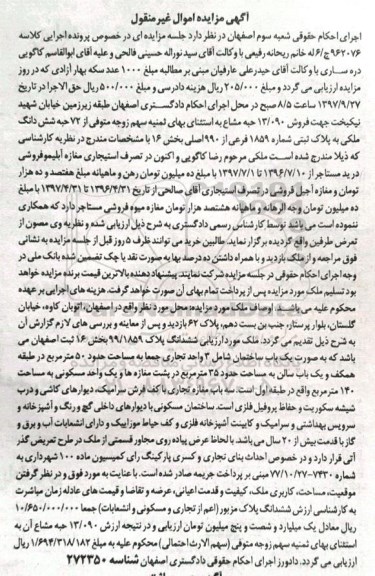 آگهی مزایده اموال غیر منقول
اجرای احکام حقوقی شعبه سوم اصفهان در نظر دارد جلسه مزایده ای در خصوص پرونده اجرایی کلاسه
۹۶۲۰۷۶ج/۶ له خانم ریحانه رفیعی با وکالت آقای سید نوراله حسینی فالحی و علیه آقای ابوالقاسم کاگویی
دره ساری با وکالت آقای حیدرعلی عارفیان مبنی بر مطالبه مبلغ ۱۰۰۰ عدد سکه بهار آزادی که در روز
مزایده ارزیابی می گردد و مبلغ ۲۰۵/۰۰۰ ریال هزینه دادرسی و مبلغ ۵۰۰/۰۰۰ ریال حق الاجرا در تاریخ
۱۳۹۷/۹/۲۷ ساعت ۸/۵ صبح در محل اجرای احکام دادگستری اصفهان طبقه زیرزمین خیابان شهید
نیکبخت جهت فروش ۱۳/۰۹۰ حبه مشاع به استثنای بهای ثمنیه سهم زوجه متوفی از ۷۲ حبه شش دانگ
ملکی به پلاک ثبتی شماره ۱۸۵۹ فرعی از ۹۹ اصلی بخش ۱۶ با مشخصات مندرج در نظریه کارشناسی
که ذیلا مندرج شده است ملکی مرحوم رضا کاگویی و اکنون در تصرف استیجاری مغازه آبلیموفروشی
در ید مستاجر از ۱۳۹۶/۷/۱۰ تا ۱۳۹۷/۷/۱ با مبلغ ده میلیون تومان رهن و ماهیانه مبلغ هفتصد و ده هزار
تومان و مغازه آجیل فروشی در تصرف استیجاری آقای صالحی از تاریخ ۱۳۹۶/۴/۳۱ تا ۱۳۹۷/۴/۳۱ با مبلغ
ده میلیون تومان وجه الرهانه و ماهیانه هشتصد هزار تومان مغازه میوه فروشی مستاجر دارد که همکاری
ننموده است می باشد توسط کارشناس رسمی دادگستری به شرح ذیل ارزیابی شده و نظریه وی مصون از
تعرض طرفین واقع گردیده برگزار نماید. طالبین خرید می توانند ظرف ۵ روز قبل از جلسه مزایده به نشانی
فوق مراجعه و از ملک بازدید و با همراه داشتن ده درصد بها به صورت نقد یا چک تضمین شده بانک ملی در
وجه اجرای احکام حقوقی در جلسه مزایده شرکت نمایند. پیشنهاد دهنده بالاترین قیمت برنده مزایده خواهد
بود تسلیم ملک مورد مزایده پس از پرداخت تمام بهای آن صورت خواهد گرفت. هزینه های اجرایی بر عهده
محکوم علیه می باشد. اوصاف ملک مورد مزایده: محل مورد نظر واقع در اصفهان، اتوبان کاوه، خیابان
گلستان، بلوار پرستار، جنب بن بست دهم، پلاک ۶۲ بازدید و پس از معاینه و بررسی های لازم گزارش آن
به شرح ذیل تقدیم می گردد. ملک مورد ارزیابی ششدانگ پلاک ۹۹/۱۸۵۹ بخش ۱۶ ثبت اصفهان می
باشد که به صورت یک باب ساختمان شامل ۳ واحد تجاری جمعا به مساحت حدود ۵۰ مترمربع در طبقه
همکف و یک باب سالن به مساحت حدود ۳۵ مترمربع در پشت مغازه ها و یک واحد مسکونی به مساحت
۱۴۰ مترمربع واقع در طبقه اول است. سه باب مغازه تجاری با کف فرش سرامیک، دیوارهای کاشی و درب
شیشه سکوریت و حفاظ پروفیل فلزی است. ساختمان مسکونی با دیوارهای داخلی گچ و رنگ و آشپزخانه و
سرویس بهداشتی و سرامیک و کابینت آشپزخانه فلزی و کف حیاط موزاییک و دارای انشعابات آب و برق و
گاز با قدمت بیش از ۲۰ سال می باشد. با لحاظ عرض پیاده روی مجاور قسمتی از ملک در طرح تعریض گذر
آتی قرار دارد و در خصوص احداث بنای تجاری و کسری پارکینگ رای کمیسیون ماده ۱۰۰ شهرداری به
شماره ۷۴۳۰-۷۷/۱۰/۲۷ مبنی بر پرداخت جریمه صادر شده است. با عنایت به مورد فوق و در نظر گرفتن
موقعیت، مساحت، کاربری ملک، کیفیت و قدمت اعیانی، عرضه و تقاضا و قیمت های عادله زمان مباشرت
به کارشناسی ارزش ششدانگ پلاک مزبور (اعم از تجاری و مسکونی و انشعابات) جمعا ۱۰/۶۵۰/۰۰۰/۰۰۰
ریال معادل یک میلیارد و شصت و پنج میلیون تومان ارزیابی و در نتیجه ارزش ۱۳/۰۹۰ حبه مشاع آن به
استثنای بهای ثمنیه سهم زوجه متوفی (سهم الارث احتمالی) محکوم علیه به مبلغ ۱/۶۹۴/۳۱۸/۱۸۲ ریال
ارزیابی می گردد. دادورز اجرای احکام حقوقی دادگستری اصفهان شناسه ۲۷۲۳۵۰